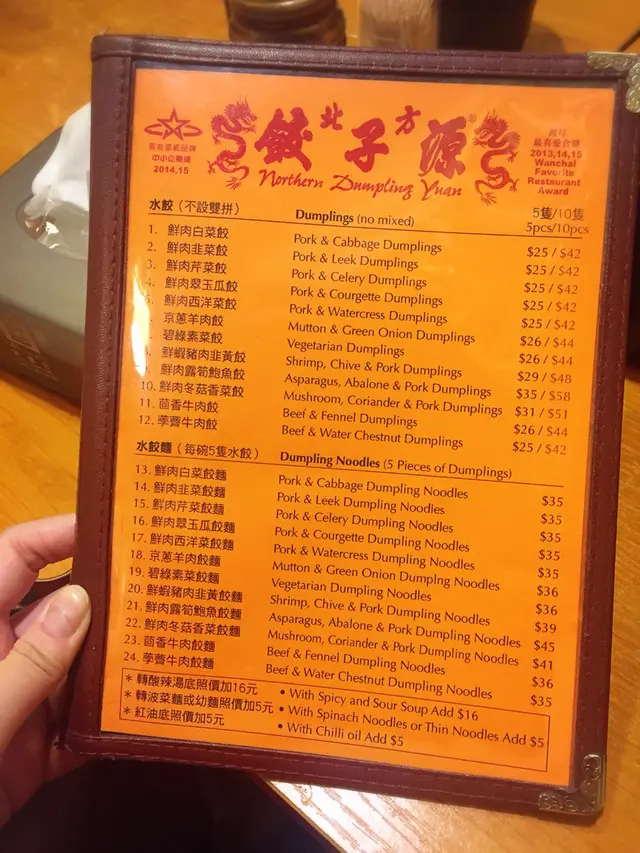 香港星級品牌
中小企業獎
2014,15
北方
餃子源®
Northern Dumpling Yuan
灣仔
最喜愛食肆
2013,14,15
Wanchai
Favorite
Restaurant
Award
水餃（不設雙拼） Dumplings (no mixed) 5隻/10隻
5pcs/10pcs
1. 鮮肉白菜餃 Pork & Cabbage Dumplings $25 / $42
2. 鮮肉韭菜餃 Pork & Leek Dumplings $25 / $42
3. 鮮肉芹菜餃 Pork & Celery Dumplings $25 / $42
4. 鮮肉翠玉瓜餃 Pork & Courgette Dumplings $25 / $42
5. 鮮肉西洋菜餃 Pork & Watercress Dumplings $25 / $42
京蔥羊肉餃 Mutton & Green Onion Dumplings $26 / $44
碧綠素菜餃 Vegetarian Dumplings $26 / $44
8. 鮮蝦豬肉韭黃餃 Shrimp, Chive & Pork Dumplings $29 / $48
9. 鮮肉露筍鮑魚餃 Asparagus, Abalone & Pork Dumplings $35 / $58
10. 鮮肉冬菇香菜餃 Mushroom, Coriander & Pork Dumplings $31 / $51
11. 茴香牛肉餃 Beef & Fennel Dumplings $26 / $44
12. 荸薺牛肉餃 Beef & Water Chestnut Dumplings $25 / $42
水餃麵（每碗5隻水餃） Dumpling Noodles (5 Pieces of Dumplings)
13. 鮮肉白菜餃麵 Pork & Cabbage Dumpling Noodles $35
14. 鮮肉韭菜餃麵 Pork & Leek Dumpling Noodles $35
15. 鮮肉芹菜餃麵 Pork & Celery Dumpling Noodles $35
16. 鮮肉翠玉瓜餃麵 Pork & Courgette Dumpling Noodles $35
17. 鮮肉西洋菜餃麵 Pork & Watercress Dumpling Noodles $35
18. 京蔥羊肉餃麵 Mutton & Green Onion Dumplng Noodles $36
19. 碧綠素菜餃麵 Vegetarian Dumpling Noodles $36
20. 鮮蝦豬肉韭黃餃麵 Shrimp, Chive & Pork Dumpling Noodles $39
21. 鮮肉露筍鮑魚餃麵 Asparagus, Abalone & Pork Dumpling Noodles $45
22. 鮮肉冬菇香菜餃麵 Mushroom, Coriander & Pork Dumpling Noodles $41
23. 茴香牛肉餃麵 Beef & Fennel Dumpling Noodles $36
24. 荸薺牛肉餃麵 Beef & Water Chestnut Dumpling Noodles $35
* 轉酸辣湯底照價加16元 • With Spicy and Sour Soup Add $16
* 轉菠菜麵或幼麵照價加5元 • With Spinach Noodles or Thin Noodles Add $5
* 紅油底照價加5元 • With Chilli oil Add $5